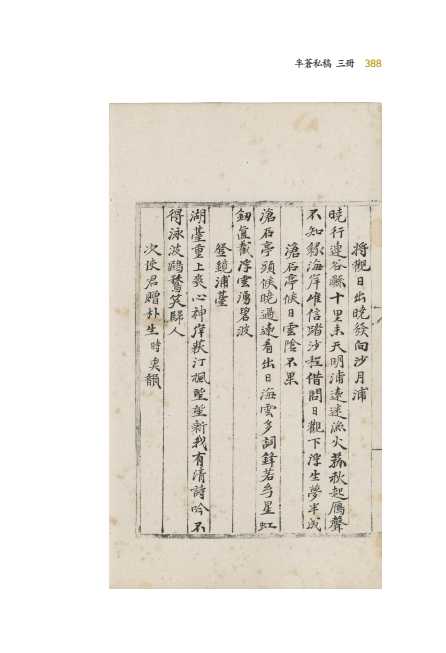 半蒼私稿 三冊 388
將觀日出曉發向沙月浦
曉行連谷縣十里未天明浦遠迷漁火秋起鴈聲
不知緣海岸唯信踏沙程借問日觀下浮生夢半成
滄石亭候日雲陰不果
滄石亭頭候曉過遠看出日海雲多詞鋒若星虹
釰直截浮雲湧碧波
登鏡浦臺
湖臺重上爽心神岸荻汀楓望望新我有清詩吟不
得泳波鷗鷺笑歸人
次使君贈朴生時奭韻